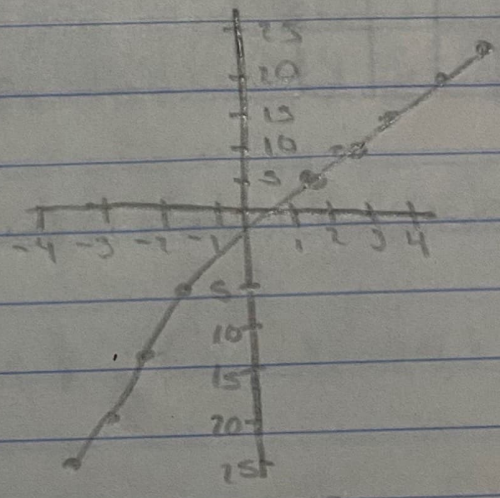 25
20
15
10
5
-4 -3 -2 -1 1 2 3 4
5
10
15
20
25